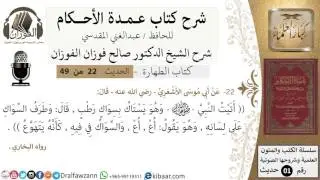 شرح كتاب عمدة الأحكام
للحافظ / عبدالغني المقدسي
شرح الشيخ الدكتور صالح فوزان الفوزان
كتاب الطهارة - الحديث 22 من 49
22- عَنْ أَبِي مُوسَى الأَشْعَرِيِّ - رضي الله عنه - قال:
(( أَتَيْتُ النَّبِيَّ - ﷺ - وَهُوَ يَسْتَاكُ بِسِوَاكٍ رَطْبٍ , قَالَ: وَطَرَفُ السِّوَاكِ
عَلَى لِسَانِهِ , وَهُوَ يَقُولُ: أُعْ , أُعْ , وَالسِّوَاكُ فِي فِيهِ , كَأَنَّهُ يَتَهَوَّعُ )) .
رواه البخاري .
الفوزان
سلسلة الكتب والمتون
العلمية وشروحها الصوتية
رقم 01 حديث
Dralfawzann
kibaar.com